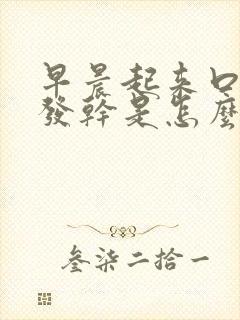 早晨起来口
發幹是怎麼
叁柒二拾一